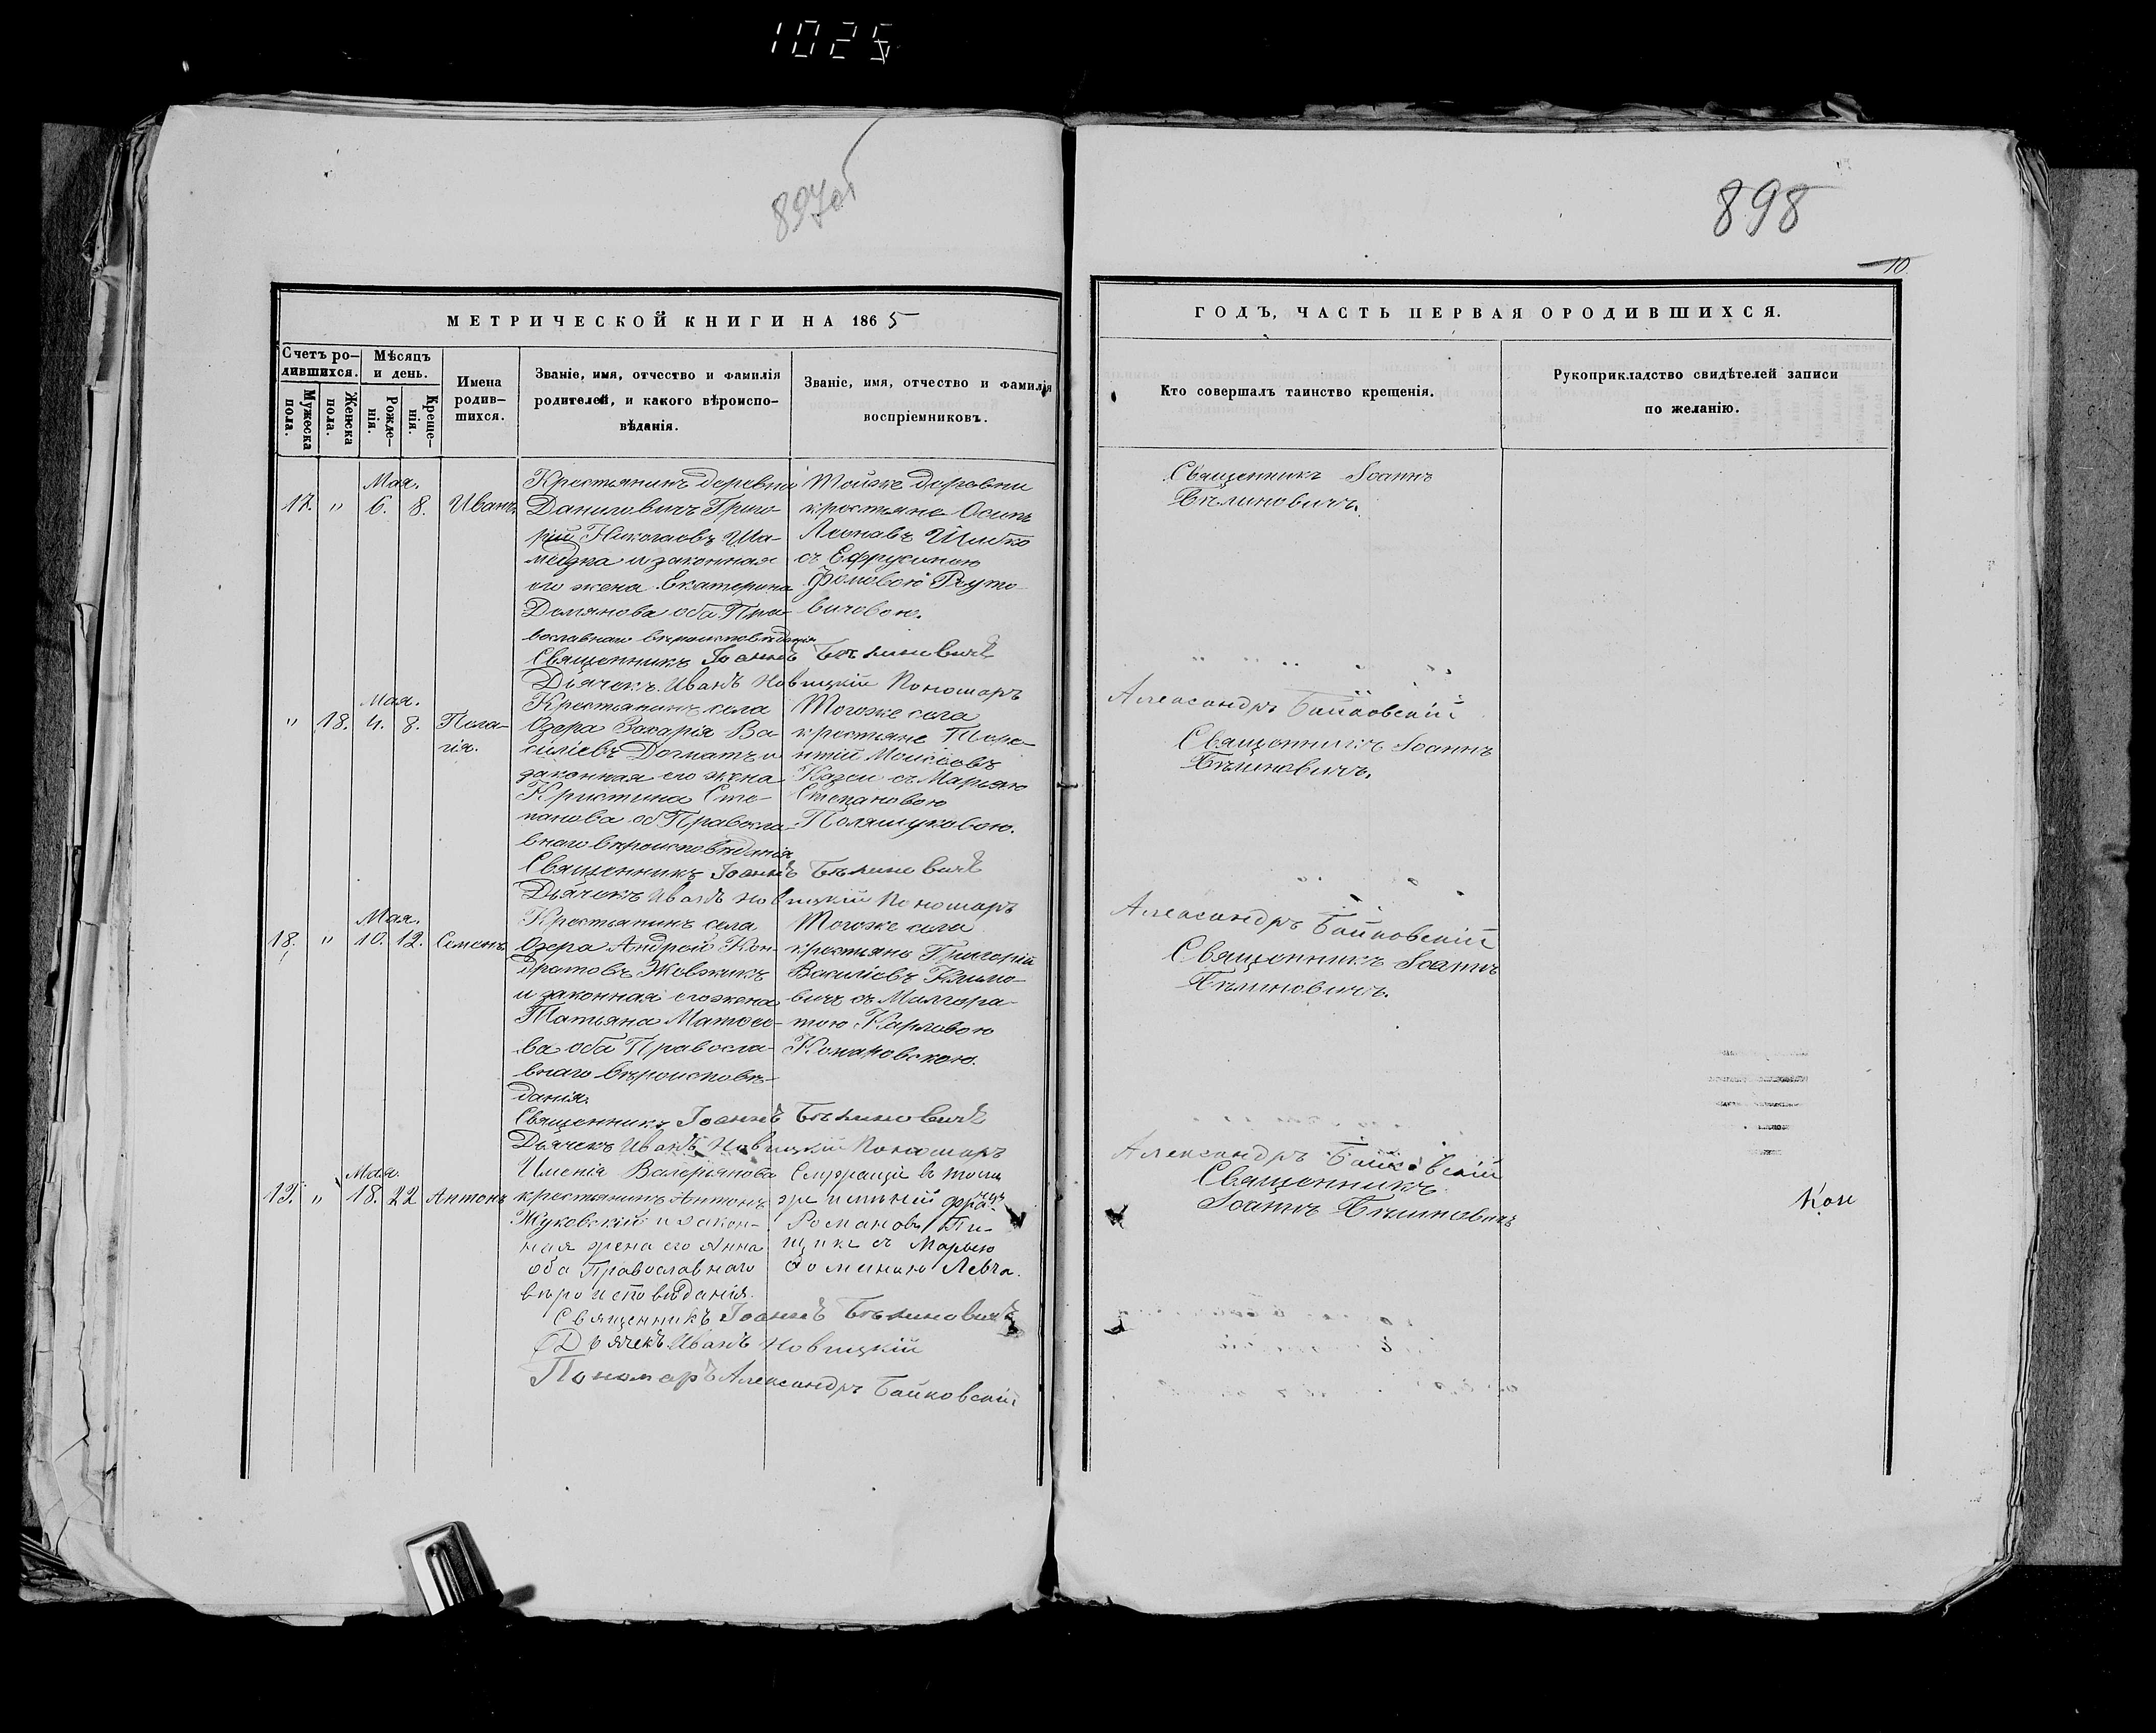 1025
897об
898
10
МЕТРИЧЕСКОЙ КНИГИ НА 1865
ГОДЪ, ЧАСТЬ ПЕРВАЯ ОРОДИВШИХСЯ.
Счетъ ро-
дившихся.
Мужеска
пола.
Женска
пола.
Мѣсяцъ
и день.
Рожде-
нія.
Креще-
нія.
Имена
родив-
шихся.
Званіе, имя, отчество и фамилія
родителей, и какого вѣроиспо-
вѣданія.
Званіе, имя, отчество и фамилія
воспріемниковъ.
Кто совершалъ таинство крещенія.
Рукоприкладство свидѣтелей записи
по желанію.
Мая.
17. " 6. 8. Иванъ
Крестьянинъ деревни
Даниговичъ Григо-
рій Николаевъ Ша-
и законная
его жена Екатерина
Демянова оба Пра-
вославнаго вѣроисповѣданія
Тойже деревни
крестьяне Осипъ
Леоновъ Шибко
съ Ефрусиною
Фомовою Руто-
вичовою.
Священникъ Іоаннъ
Бѣлиновичъ.
Священникъ Іоаннъ Бѣлиновичъ
Дьячекъ Иванъ Новицкій Пономарь
Александръ Байковскій
Мая.
" 18. 4. 8. Пела-
гія.
Крестьянинъ села
Озера Захарія Ва-
силіевъ Догматъ и
законная его жена
Кристина Сте-
панова об Правосла-
внаго вѣроисповѣданія
Тогоже села
крестьяне Тере-
нтій Моисеовъ
Казеи съ Марьяю
Степановою
Поляшуковою.
Священникъ Іоаннъ
Бѣлиновичъ.
Священникъ Іоаннъ Бѣлиновичъ
Дьячекъ Иванъ Новицкій Пономарь
Александръ Байковскій
Мая.
18. " 10. 12. Семенъ
Крестьянинъ села
Озера Андрей Кон-
дратовъ Жовжикъ
и законная его жена
Татьяна Матвео-
ва оба Правосла-
внаго вѣроисповѣ-
данія.
Тогоже села
крестьяне Григорій
Василіевъ Климо-
вичъ съ Малгора-
тою Карловою
Комаровскою.
Священникъ Іоаннъ
Бѣлиновичъ.
Священникъ Іоаннъ Бѣлиновичъ
Дьячекъ Иванъ Новицкій Пономарь
Александръ Байковскій
Мая.
19. " 18. 22 Антонъ
Именія Валерьянова
крестьянинъ Антонъ
Жуковскій и закон-
ная жена его Анна
оба Православнаго
вѣроисповѣданія.
Служащіе въ томъ
же имѣніи
Романовъ Пи-
щикъ съ Марьею
Левча.
Священникъ
Іоаннъ Бѣлиновичъ
Кон
Священникъ Іоаннъ Бѣлиновичъ
Дьячекъ Иванъ Новицкій
Пономарь Александръ Байковскій